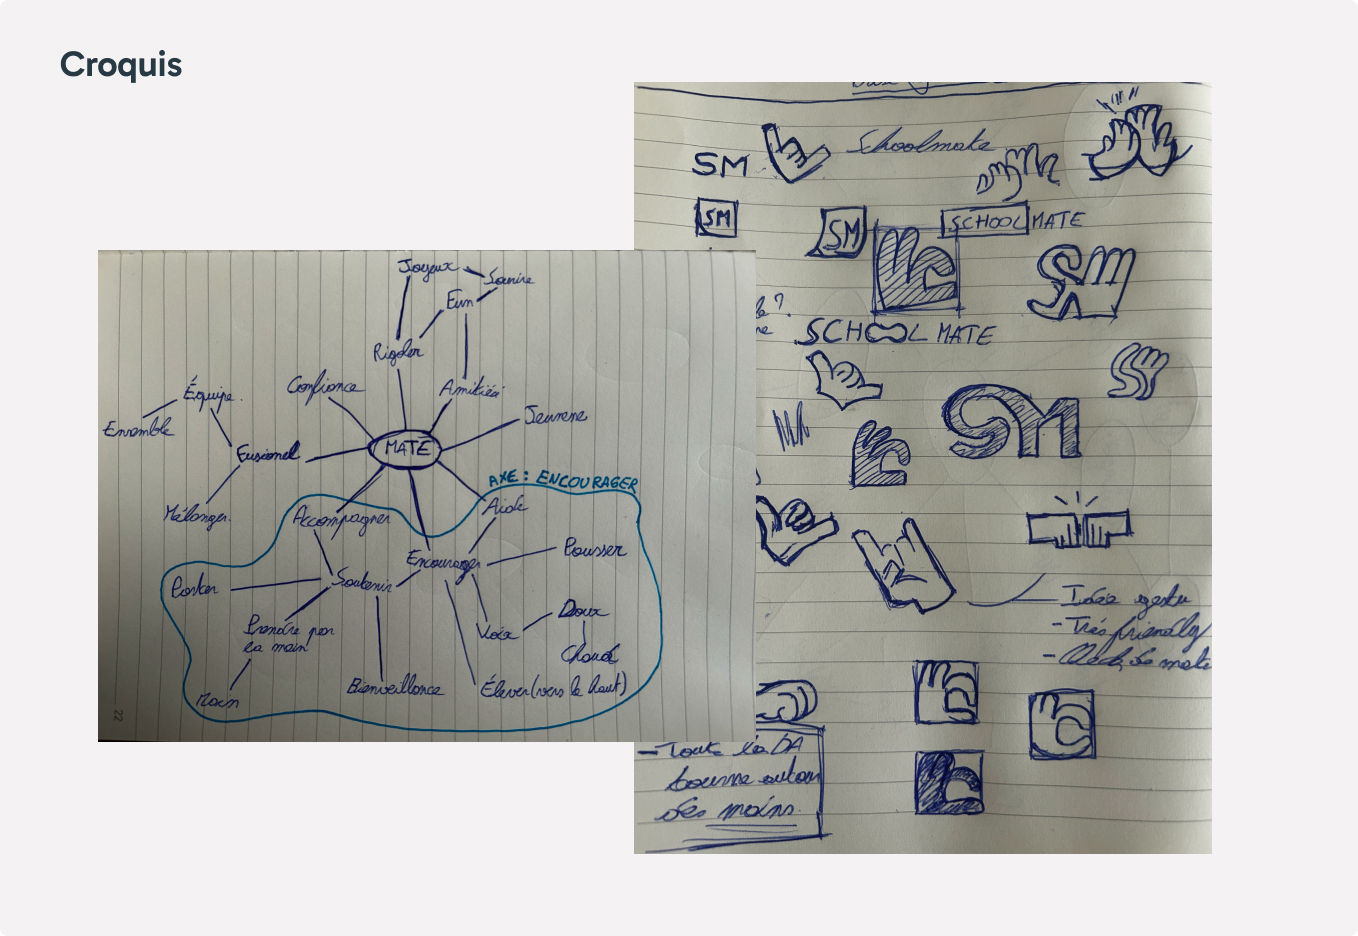 Croquis
Joyeux
Sourire
Fun
Rigoler
Confiance
Amitiés
Équipe.
Jeunesse
Ensemble
MATE
Fusionel
AXE : ENCOURAGER
Mélanger.
Accompagner
Aide
Encourager
Pousser
Porter
Soutenir
Doux
Prendre par
la main
Voix
Chaud
Bienveillance
Élever (vers le haut)
Main
22
Schoolmate
SM
SM
SM
SCHOOL MATE
SM
SCHOOL MATE
SM
SM
Idée
- Très friendly
- Toute la DA
tourne autour
des mains.